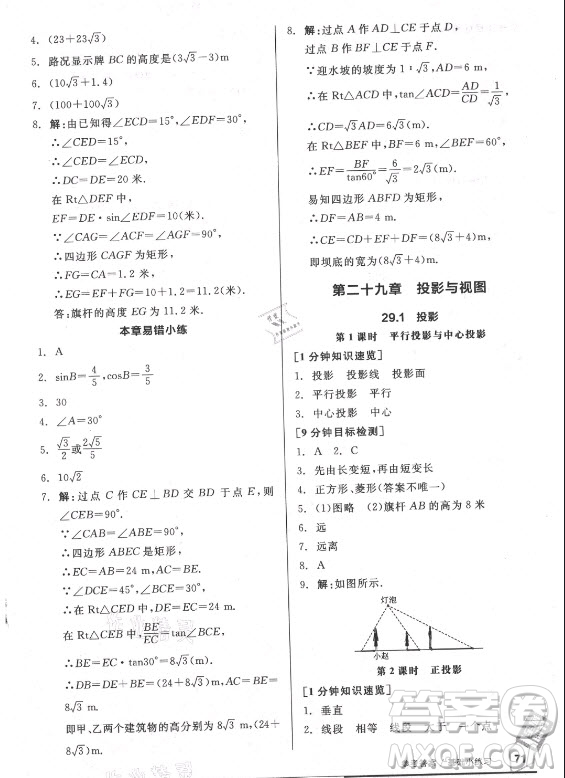 4. (23+23√3)
5. 路况显示牌 BC 的高度是(3√3−3)m
6. (10√3+1.4)
7. (100+100√3)
8. 解:由已知得∠ECD=15°,∠EDF=30°,
∴∠CED=15°,
∴∠CED=∠ECD,
∴DC=DE=20(米).
在 Rt△DEF 中,
EF=DE·sin∠EDF=10(米).
∵∠CAG=∠ACF=∠AGF=90°,
∴四边形 AGFC 为矩形,
∴FG=CA=1.2 米,
∴EG=EF+FG=10+1.2=11.2(米).
答:旗杆的高度 EG 为 11.2 米.
本章易错小练
1. A
2. sinB=4/5,cosB=3/5
3. 30
4. ∠A=30°
5. √3/2或2√5/5
6. 10√2
7. 解:过点 C 作 CE⊥BD 交 BD 于点 E,则
∠CEB=90°.
∵∠CAB=∠ABE=90°,
∴四边形 ABEC 是矩形,
∴EC=AB=24 m,BE=AC.
∵∠DCE=45°,∠BCE=30°,
∴在 Rt△CED 中,DE=CE=24 m,
在 Rt△CEB 中,BE/EC=tan∠BCE,
∴BE=EC·tan30°=8√3(m),
∴BD=BE+DE=(24+8√3)m,
∴AC=BE=8√3(m).
即甲、乙两个建筑物的高分别为 8√3 m,(24+
8√3)m.
8. 解:过点 A 作 AD⊥CF 于点 D,
过点 B 作 BF⊥CF 于点 F.
∵迎水坡的坡度为 1∶√3,
∴在 Rt△ACD 中,tan∠ACD=AD/CD=1/√3,
∴CD=√3AD=6√3 m.
在 Rt△BEF 中,∠BEF=60°,
∴EF=BF/tan60°=6/√3=2√3(m).
易知四边形 ABFD 为矩形,
∴DF=AB=4 m.
∴CE=CD+DF+EF=(8√3+4)m,
即坝底的宽为(8√3+4)m.
第二十九章 投影与视图
29.1 投影
第 1 课时 平行投影与中心投影
[1 分钟知识速览]
1. 投影 投影线 投影面
2. 平行投影 平行
3. 中心投影 中心
[9 分钟目标检测]
1. A 2. C
3. 先由长变短,再由短变长
4. 正方形、菱形(答案不唯一)
5. (1)图略 (2)旗杆 AB 的高为 8 米
6. 远
7. 远离
8. A
9. 解:如图所示.
灯泡
小赵
第 2 课时 正投影
[1 分钟知识速览]
1. 垂直
2. 线段 相等 线段 大于 一个点
71
答案圈
MXQE.COM